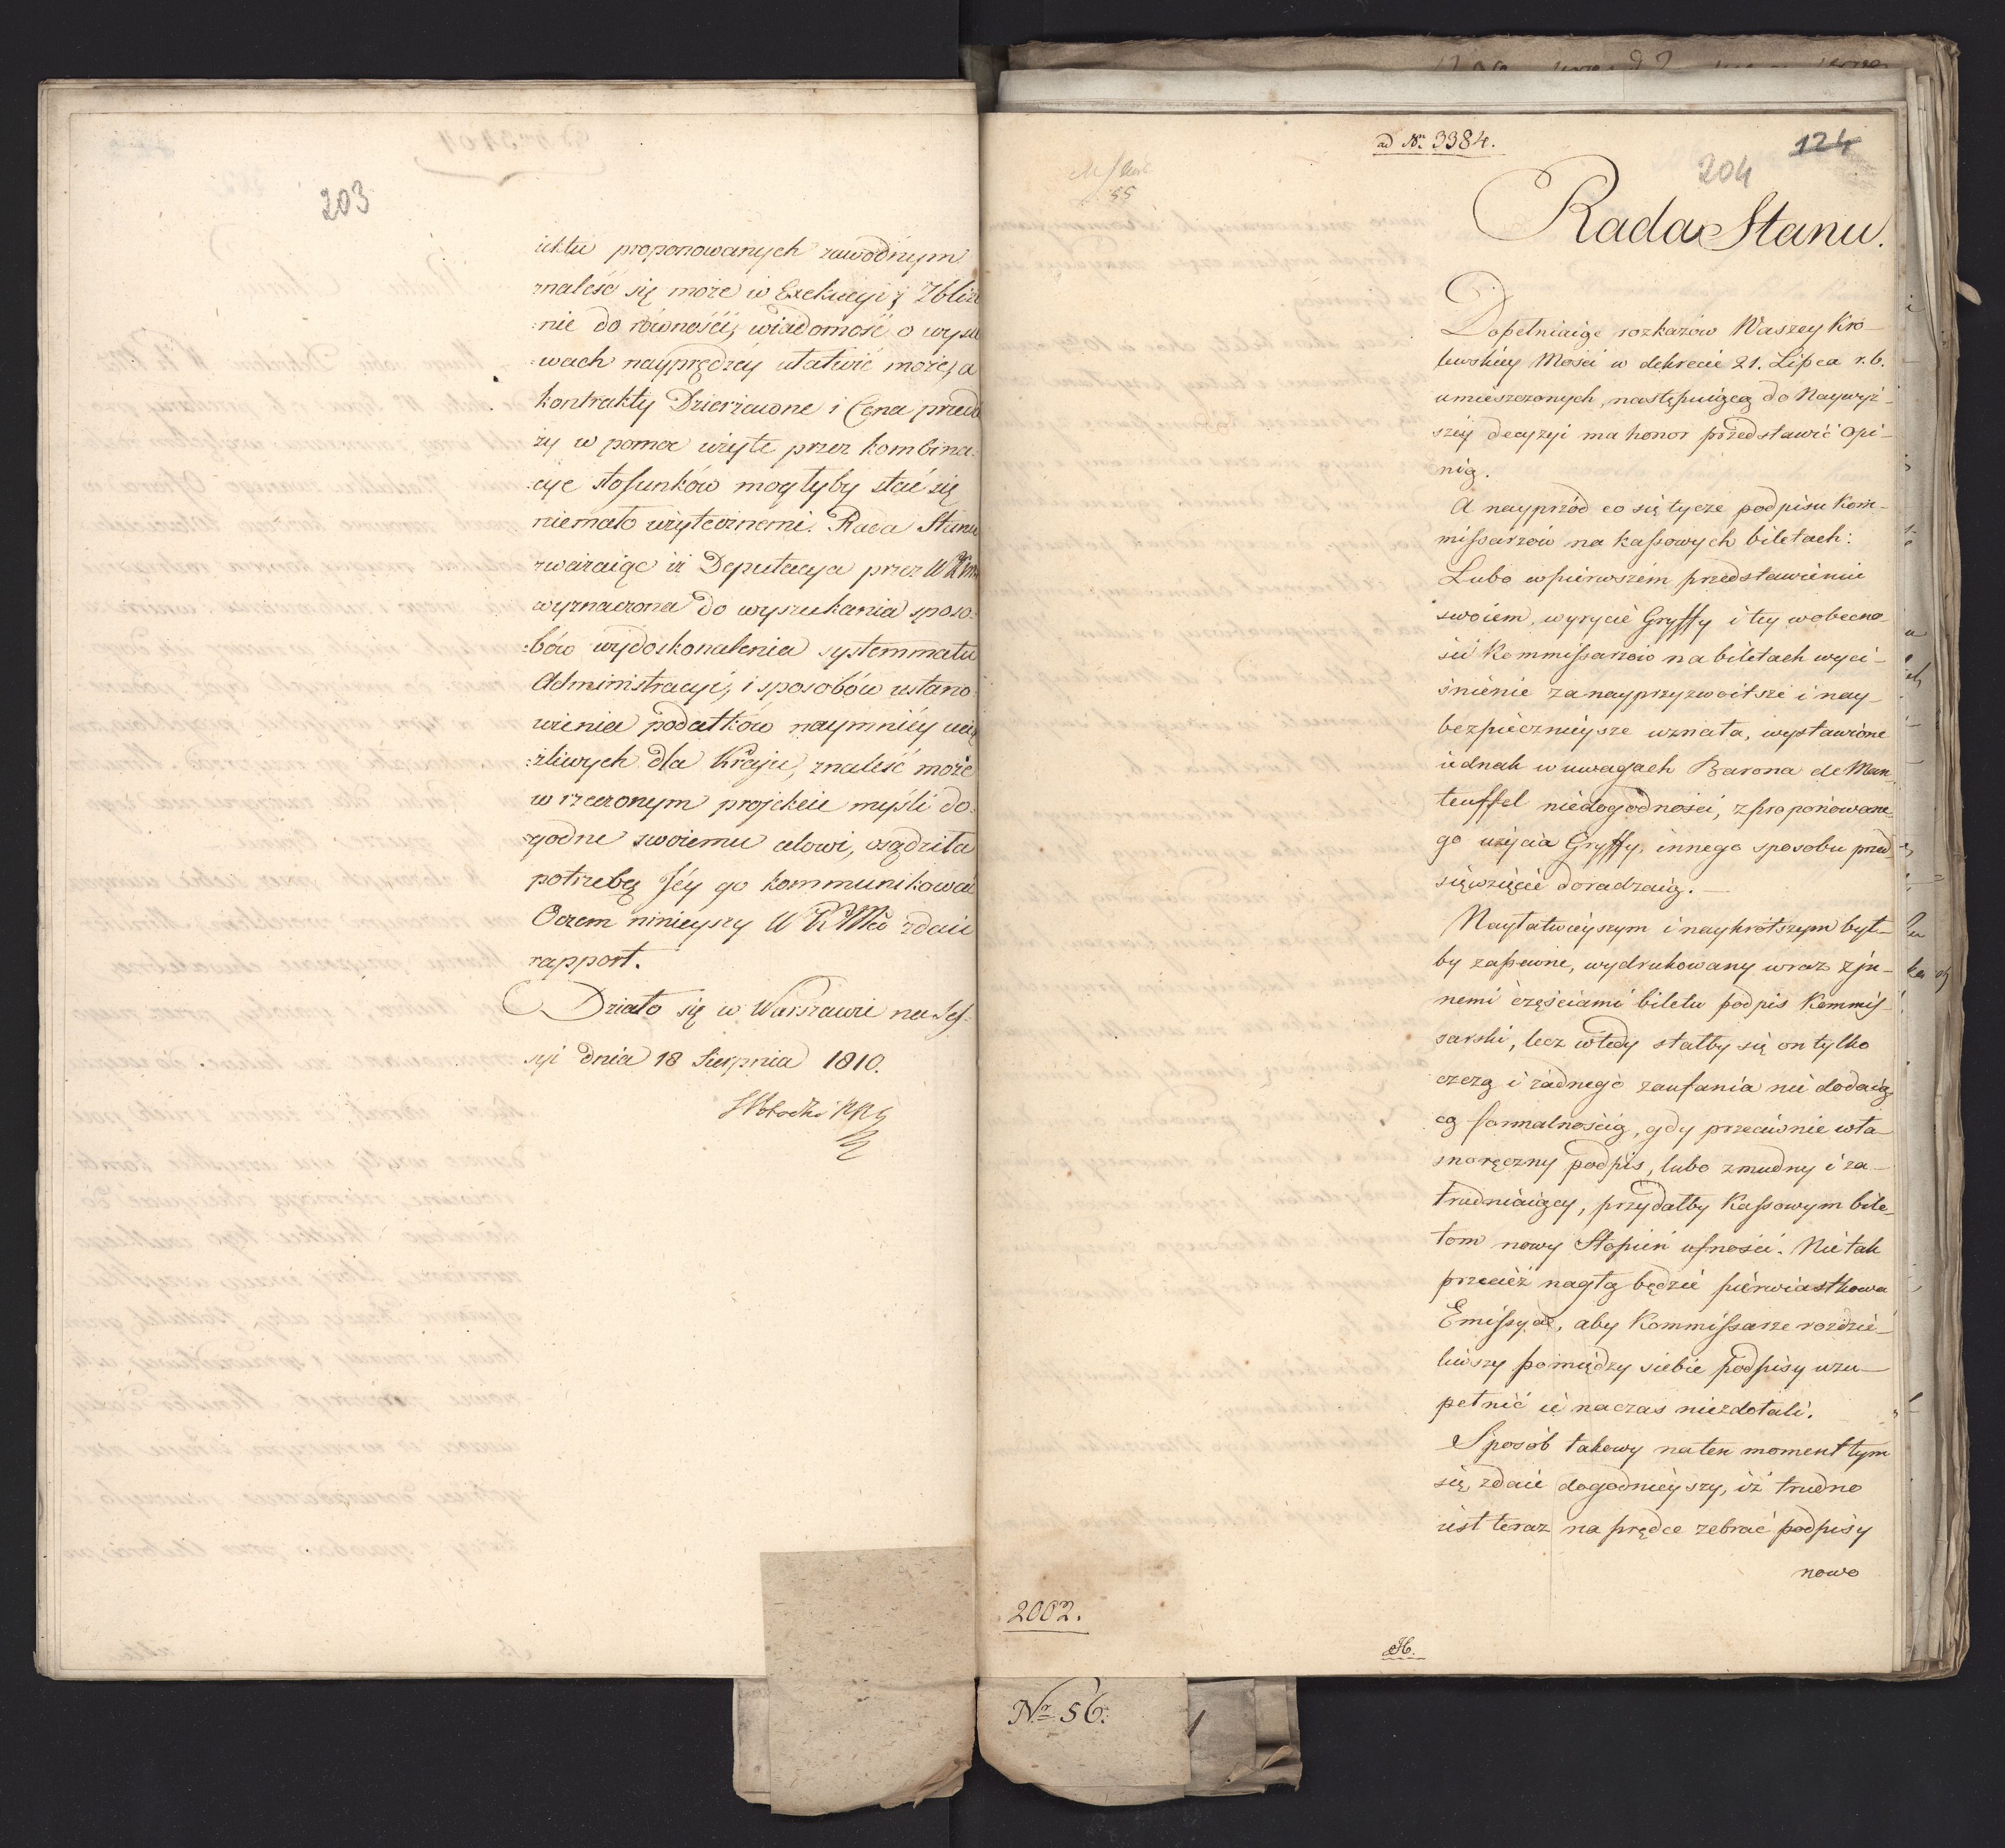 203
iektu proponowanych zawodnym
znaleść się może w Exekucyi; Zbliże
:nie do równości, wiadomość o wysie
:wach nayprędzéy ułatwić może, a
kontrakty Dzierżawne i Cena przeda
ży w pomoc użyte przez kombina:
:cye stosunków mogłyby stać się
niemało użytecznemi. Rada Stanu
zważaiąc iż Deputacya przez WKM
wyznaczona do wyszukania sposo:
:bów wydoskonalenia systemmatu
Administracyi, i sposobów ustano
wienia podatków naymniéy ucią
:żliwych dla Kraju, znaleść może
w rzeczonym projekcie myśli do:
:godne swoiemu celowi, osądziła
potrzebą Jéy go kommunikować
Oczem ninieyszy W K Mci zdaie
rapport.
Działo się w Warszawie na Ses:
syi dnia 18 Sierpnia 1810.
ad Nr. 3384.
124
204
Rada Stanu.
Dopełniaiąc rozkazów Waszey Kró
lewskiey Mości w dekrecie 21. Lipca r. b.
umieszczonych, następuiącą do Naywyż
szey decyzyi ma honor przedstawić opi
nią.
A nayprzód co się tycze podpisu Kom
missarzów na kassowych biletach:
Lubo w pierwszém przedstawieniu
swoiem, wyrycie Gryffy i tey wobecno
ści Kommissarzów na biletach wyci
śnienie za nayprzyzwoitsze i nay
bezpiecznieysze uznała, wystawione
iednak w uwagach Barona de Man
teuffel niedogodności, z proponowane
go użycia Gryffy, innego sposobu przed
sięwzięcie doradzaią.
Nayłatwieyszym i naykrótszym był
by zapewne, wydrukowany wraz z in
nemi częściami biletu podpis Kommis
sarski, lecz wtedy stałby się on tylko
czczą i żadnego zaufania nie dodaią
cą formalnością, gdy przeciwnie wła
snoręczny podpis, lubo zmudny i za
trudniaiący, przydałby Kassowym bile
tom nowy Stopień ufności. Nie tak
przecież nagłą będzie pierwiastkowa
Emissya, aby Kommissarze rozdzie
liwszy pomiędzy siebie podpisy uzu
pełnić ie na czas niezdołali.
Sposób takowy na ten moment tym
się zdaie dogodnieyszy, iż trudno
iest teraz na prędce zebrać podpisy
nowo
2002.
Nr. 56.